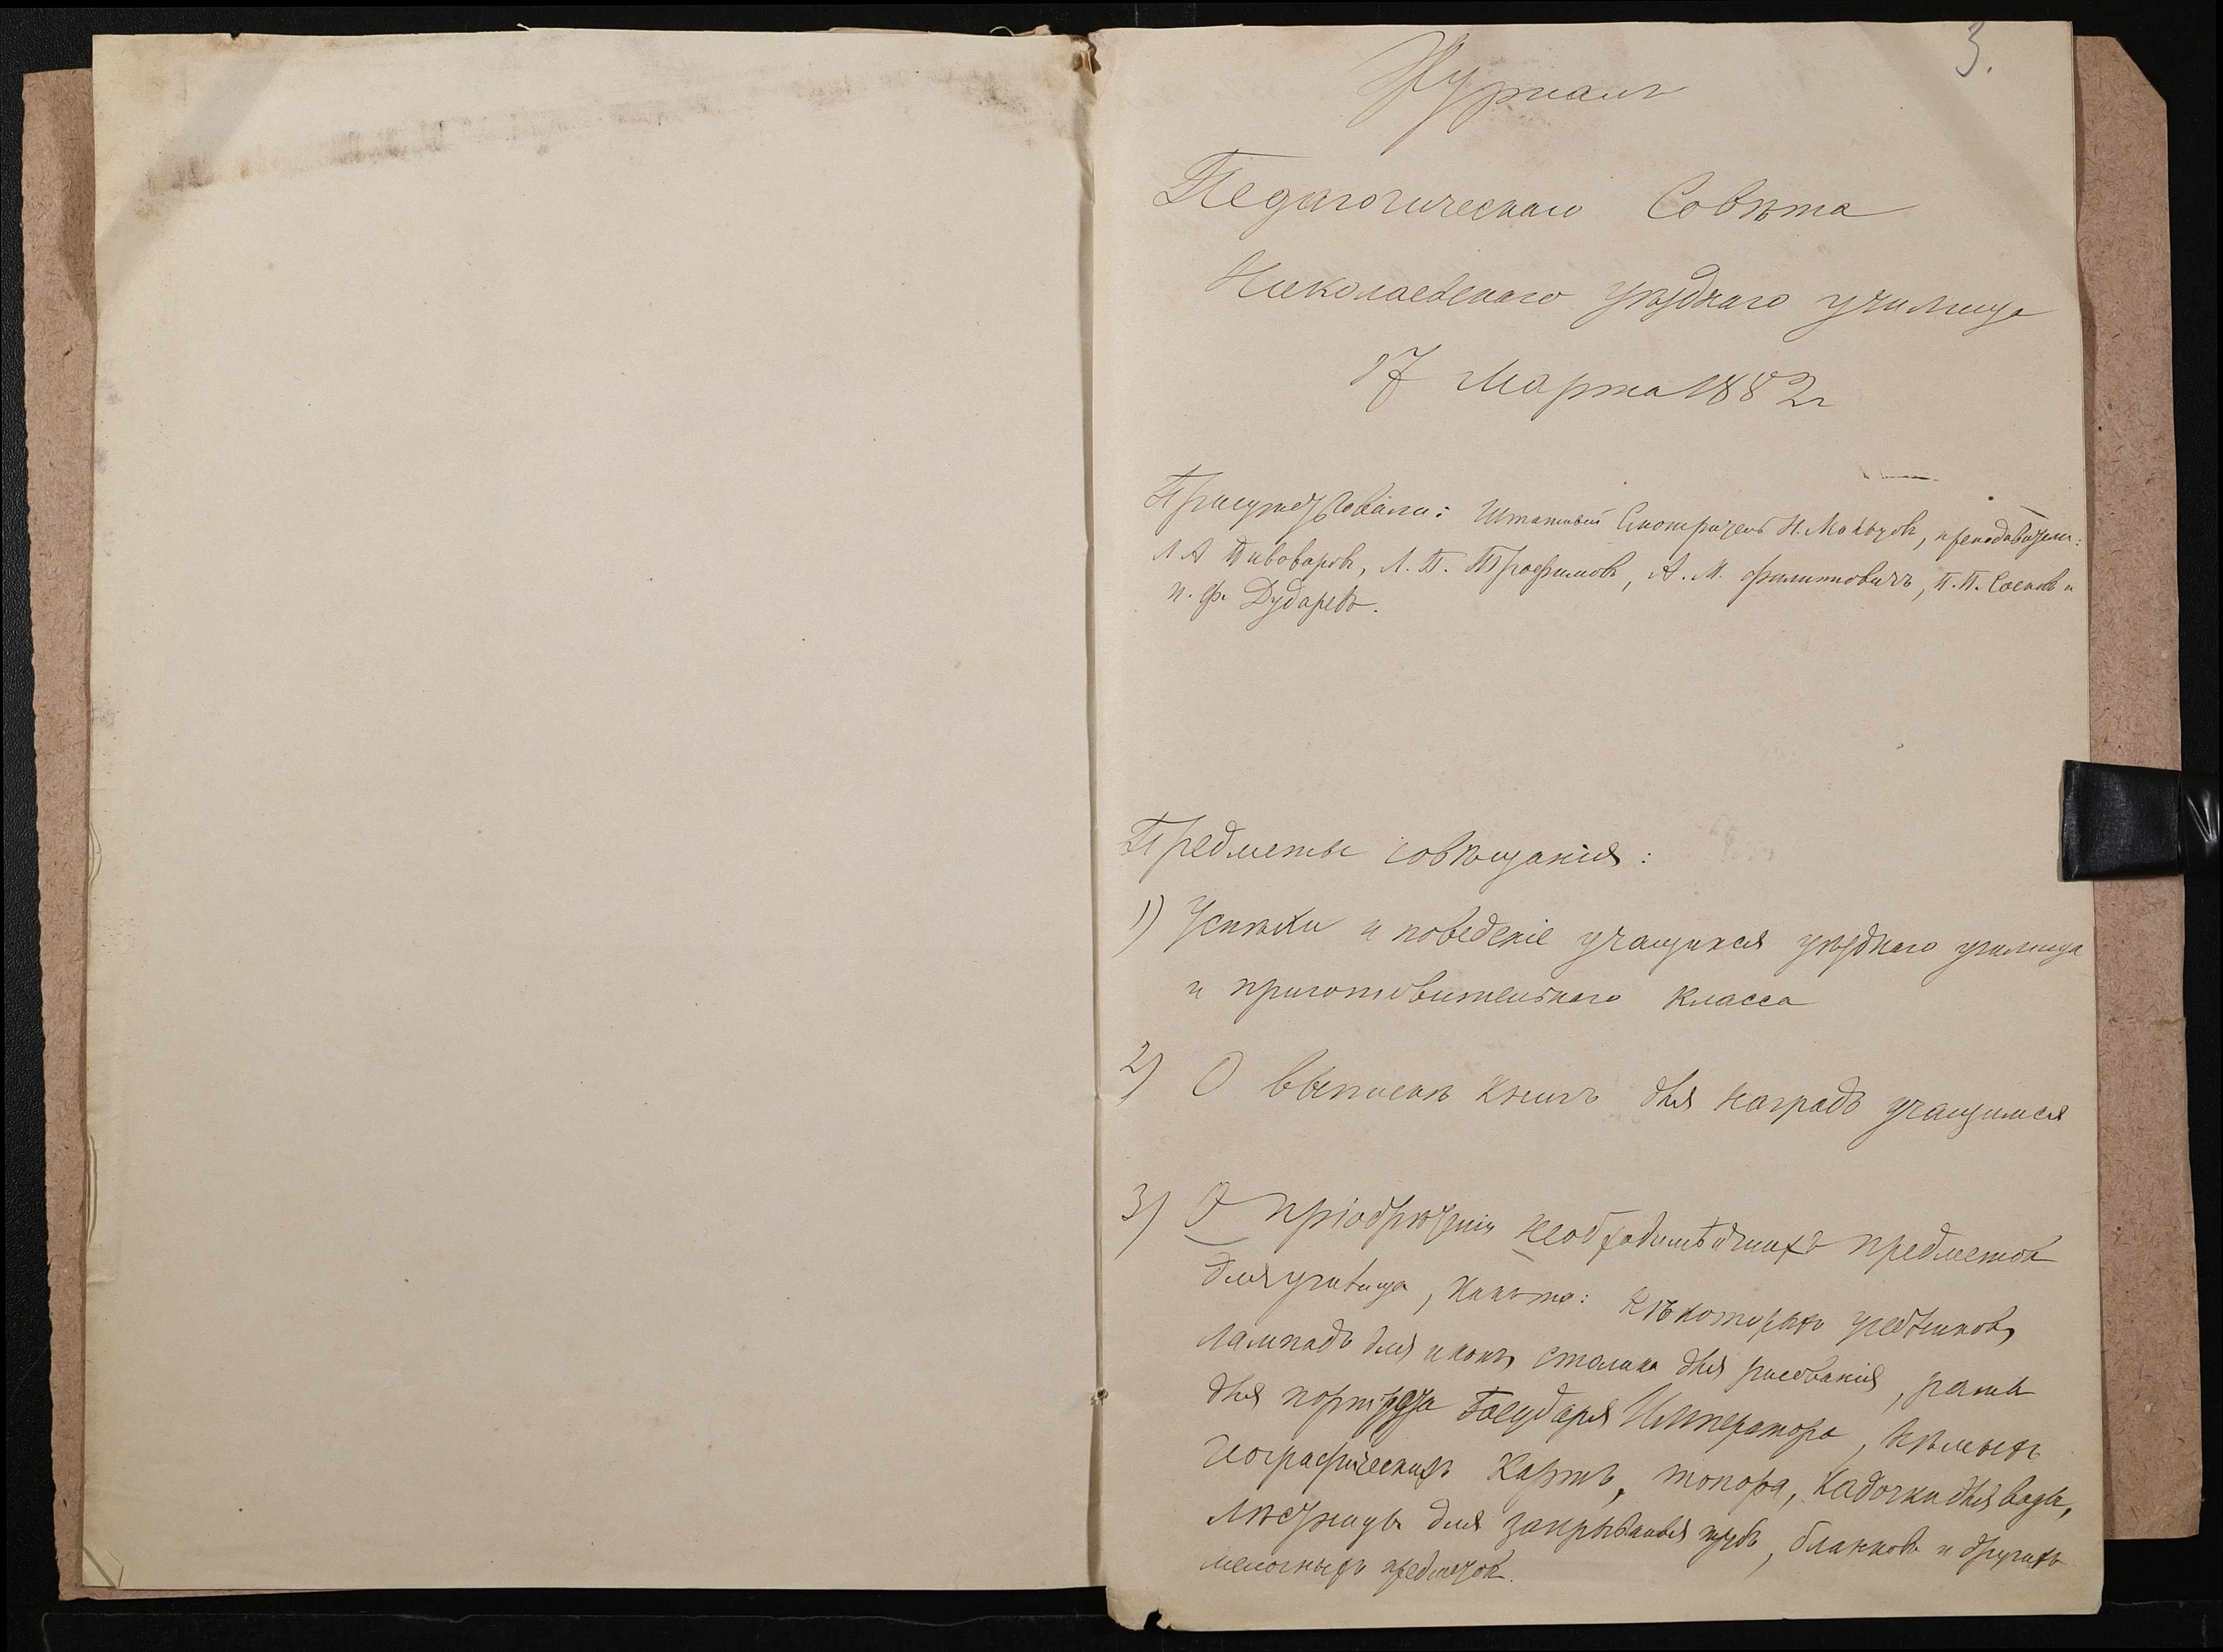 3.
Журналъ
Педагогическаго Совѣта
Николаевскаго уѣзднаго училища
17 Марта 1882 г
Присутствовали: Штатный Смотритель Н. , преподаватели:
А Пивоваровъ, Л. П. Трофимовъ, А. М. Филипповичъ, П. П. и
Ф. Дударевъ.
Предметы совѣщанія:
1) Успѣхи и поведеніе учащихся уѣзднаго училища
и приготовительнаго класса
2) О выпискѣ книгъ для наградъ учащимся
3) О пріобрѣтеніи необходимѣйшихъ предметовъ
для училища, какъ то: нѣкоторыхъ учебниковъ,
лампадъ для иконъ, столика для рисованія, рамы
для портрета Государя Императора, нѣмыхъ
географическихъ картъ, топора, кадочки для воды,
лѣстницы для закрыванья трубъ, бланковъ и другихъ
мелочныхъ предметовъ.